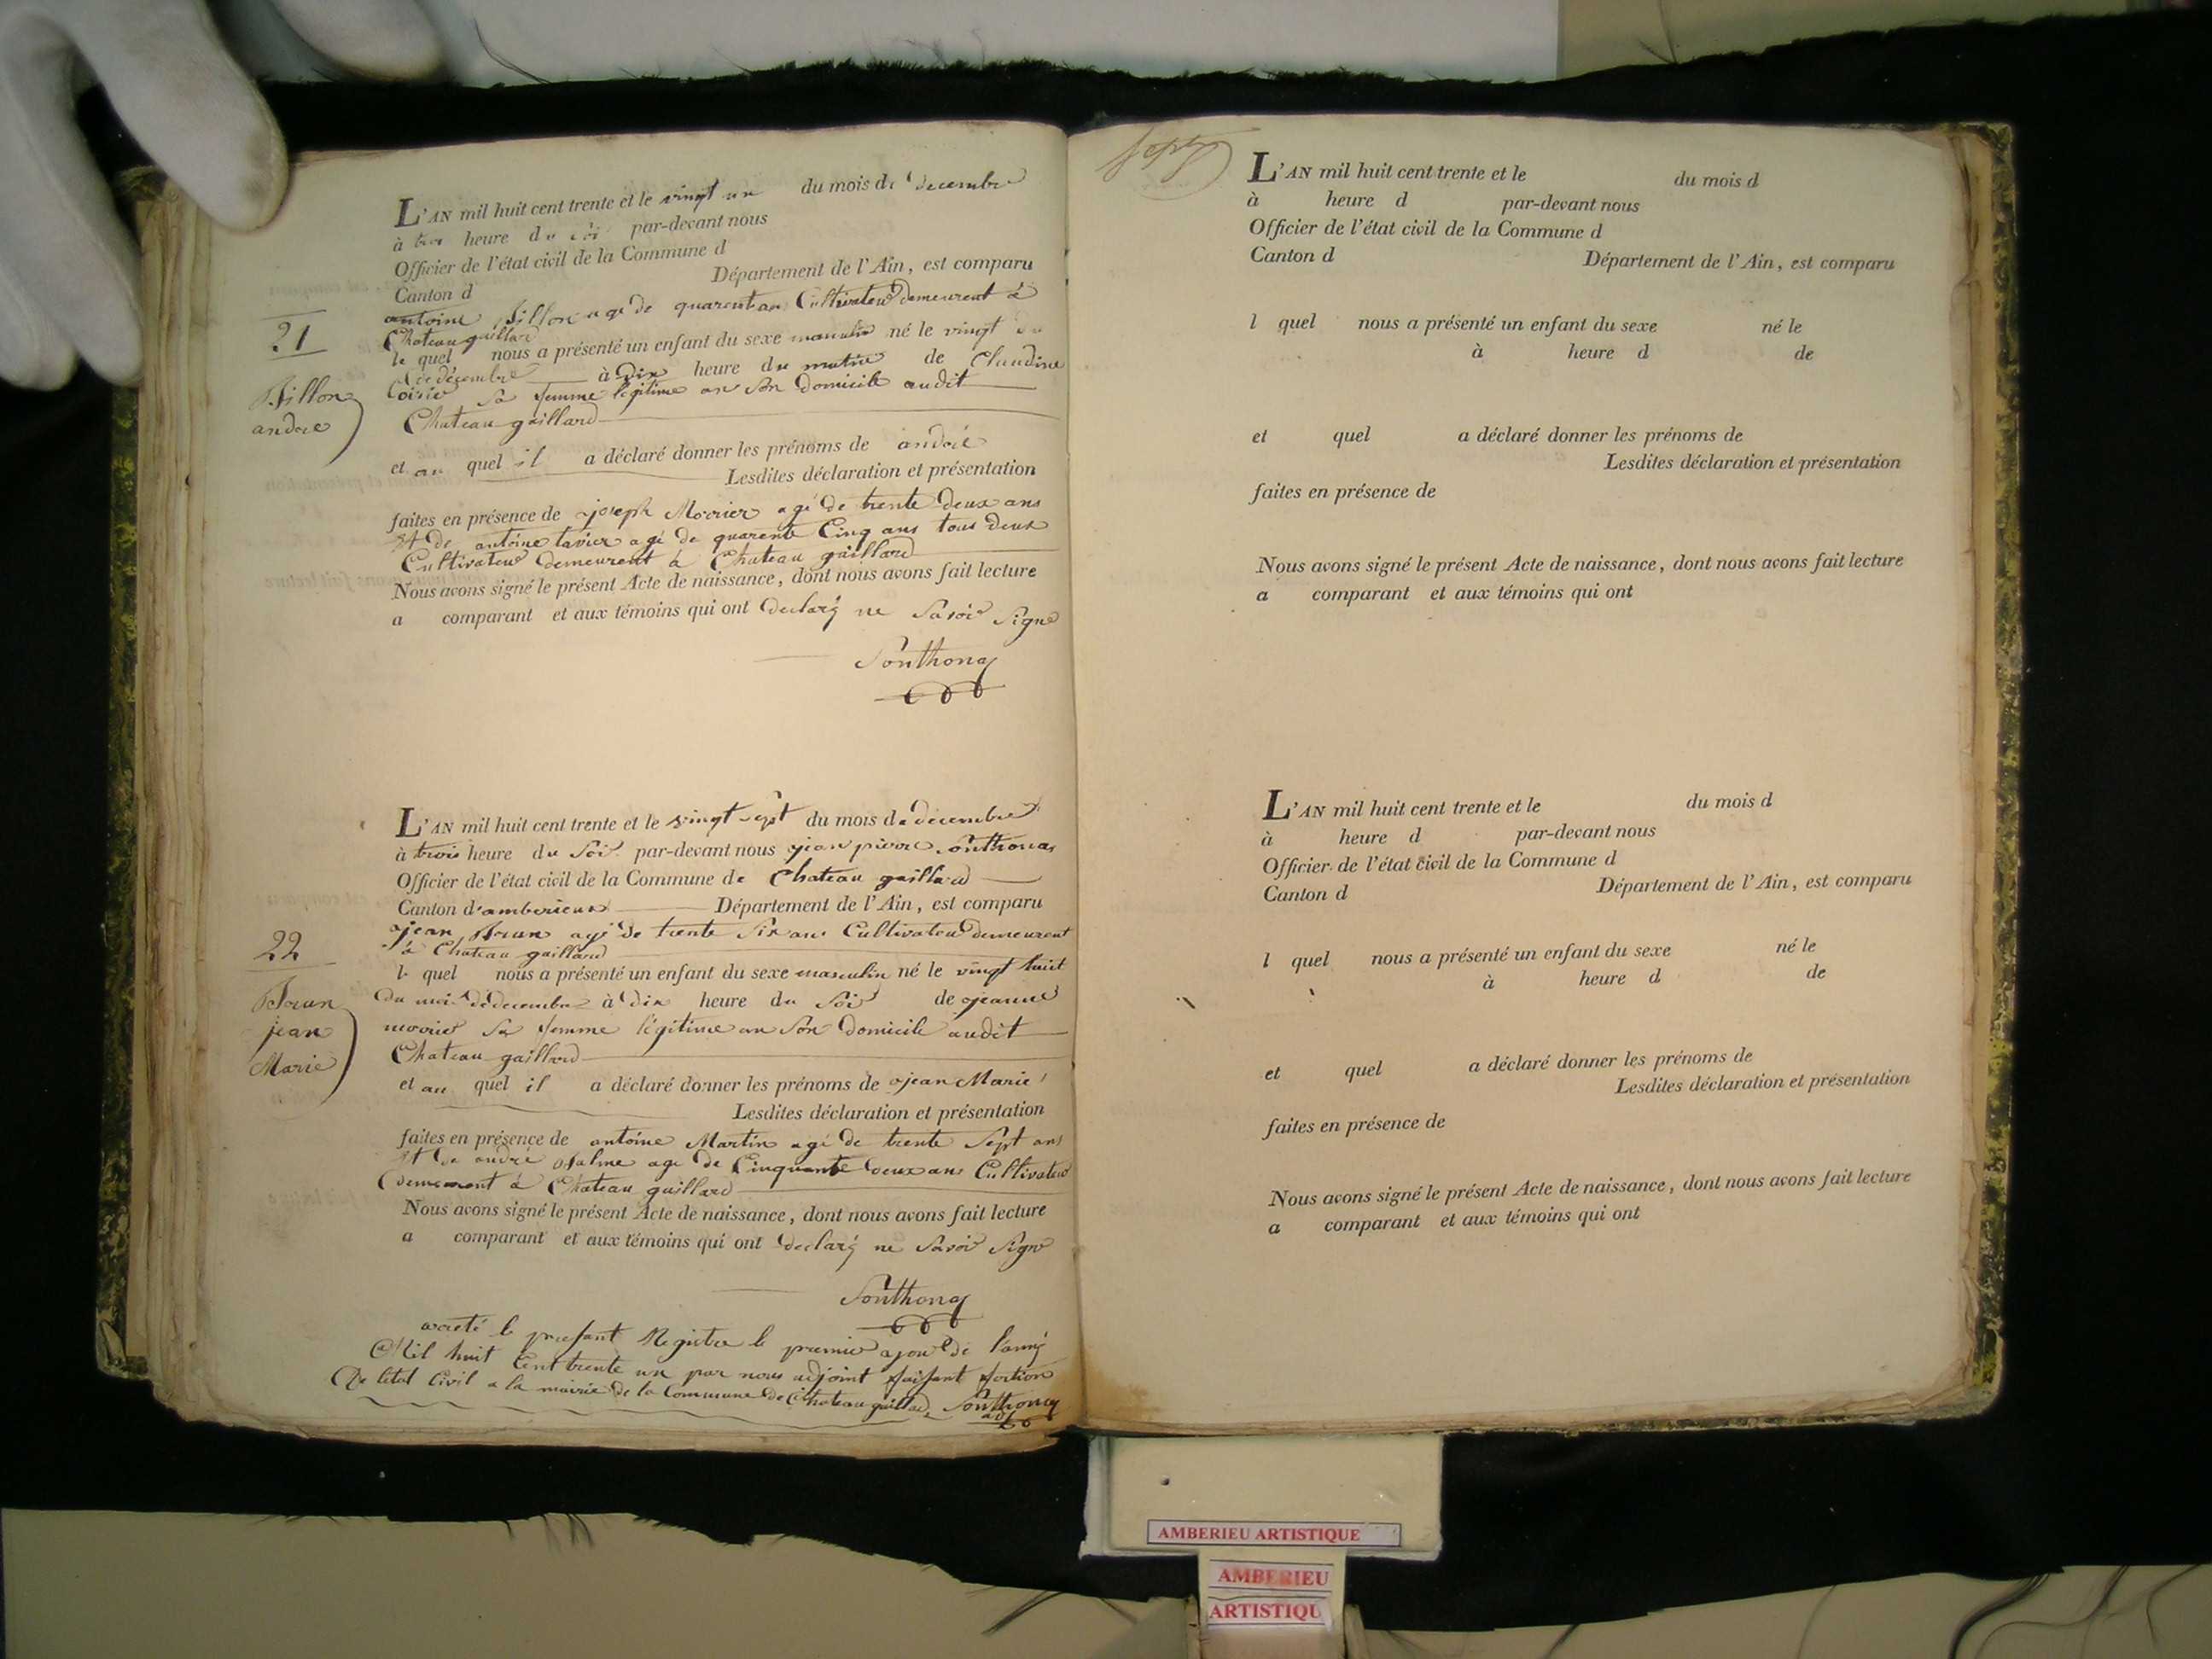 L'AN mil huit cent trente et le vingt un du mois de decembre
à heure du par-devant nous
Officier de l'état civil de la Commune d
Canton d Département de l'Ain, est comparu
antoine agé de quarent an Cultivateur demeurent à
Chateau gaillard
le quel nous a présenté un enfant du sexe masculin né le vingt
de décembre à Dix heure du matin de Claudine
sa femme légitime an Son Domicile audit
Chateau gaillard
et au quel il a déclaré donner les prénoms de andré
Lesdites déclaration et présentation
faites en présence de joseph Morrier agé de trente Deux ans
Et de antoine tavier agé de quarente Cinq ans tous Deux
Cultivateur Demeurent à Chateau gaillard
Nous avons signé le présent Acte de naissance, dont nous avons fait lecture
a comparant et aux témoins qui ont declaré ne Savoir Signé
21
andre
L'AN mil huit cent trente et le vingt sept du mois de decembre
à trois heure du Soir par-devant nous jean pierre
Officier de l'état civil de la Commune de Chateau gaillard
Canton d'amberieux Département de l'Ain, est comparu
jean agé de trente Six ans Cultivateur demeurent
à Chateau gaillard
le quel nous a présenté un enfant du sexe masculin né le vingt huit
du mois de decembre à Dix heure du Soir de jeanne
morrier Sa femme légitime an Son Domicile audit
Chateau gaillard
et au quel il a déclaré donner les prénoms de jean Marie
Lesdites déclaration et présentation
faites en présence de antoine Martin agé de trente Sept ans
Et de andré agé de Cinquante Deux ans Cultivateur
à Chateau gaillard
Nous avons signé le présent Acte de naissance, dont nous avons fait lecture
a comparant et aux témoins qui ont declaré ne Savoir Signé
22
jean
Marie
le Registre le premier jour de l'anné
Mil huit Cent trente un par nous adjoint faisant
De létat Civil a la mairie de la Commune de Chateau gaillard
L'AN mil huit cent trente et le du mois d
à heure d par-devant nous
Officier de l'état civil de la Commune d
Canton d Département de l'Ain, est comparu
l quel nous a présenté un enfant du sexe né le
à heure d de
et quel a déclaré donner les prénoms de
Lesdites déclaration et présentation
faites en présence de
Nous avons signé le présent Acte de naissance, dont nous avons fait lecture
a comparant et aux témoins qui ont
L'AN mil huit cent trente et le du mois d
à heure d par-devant nous
Officier de l'état civil de la Commune d
Canton d Département de l'Ain, est comparu
l quel nous a présenté un enfant du sexe né le
à heure d de
et quel a déclaré donner les prénoms de
Lesdites déclaration et présentation
faites en présence de
Nous avons signé le présent Acte de naissance, dont nous avons fait lecture
a comparant et aux témoins qui ont
AMBERIEU ARTISTIQUE
AMBERIEU
ARTISTIQU